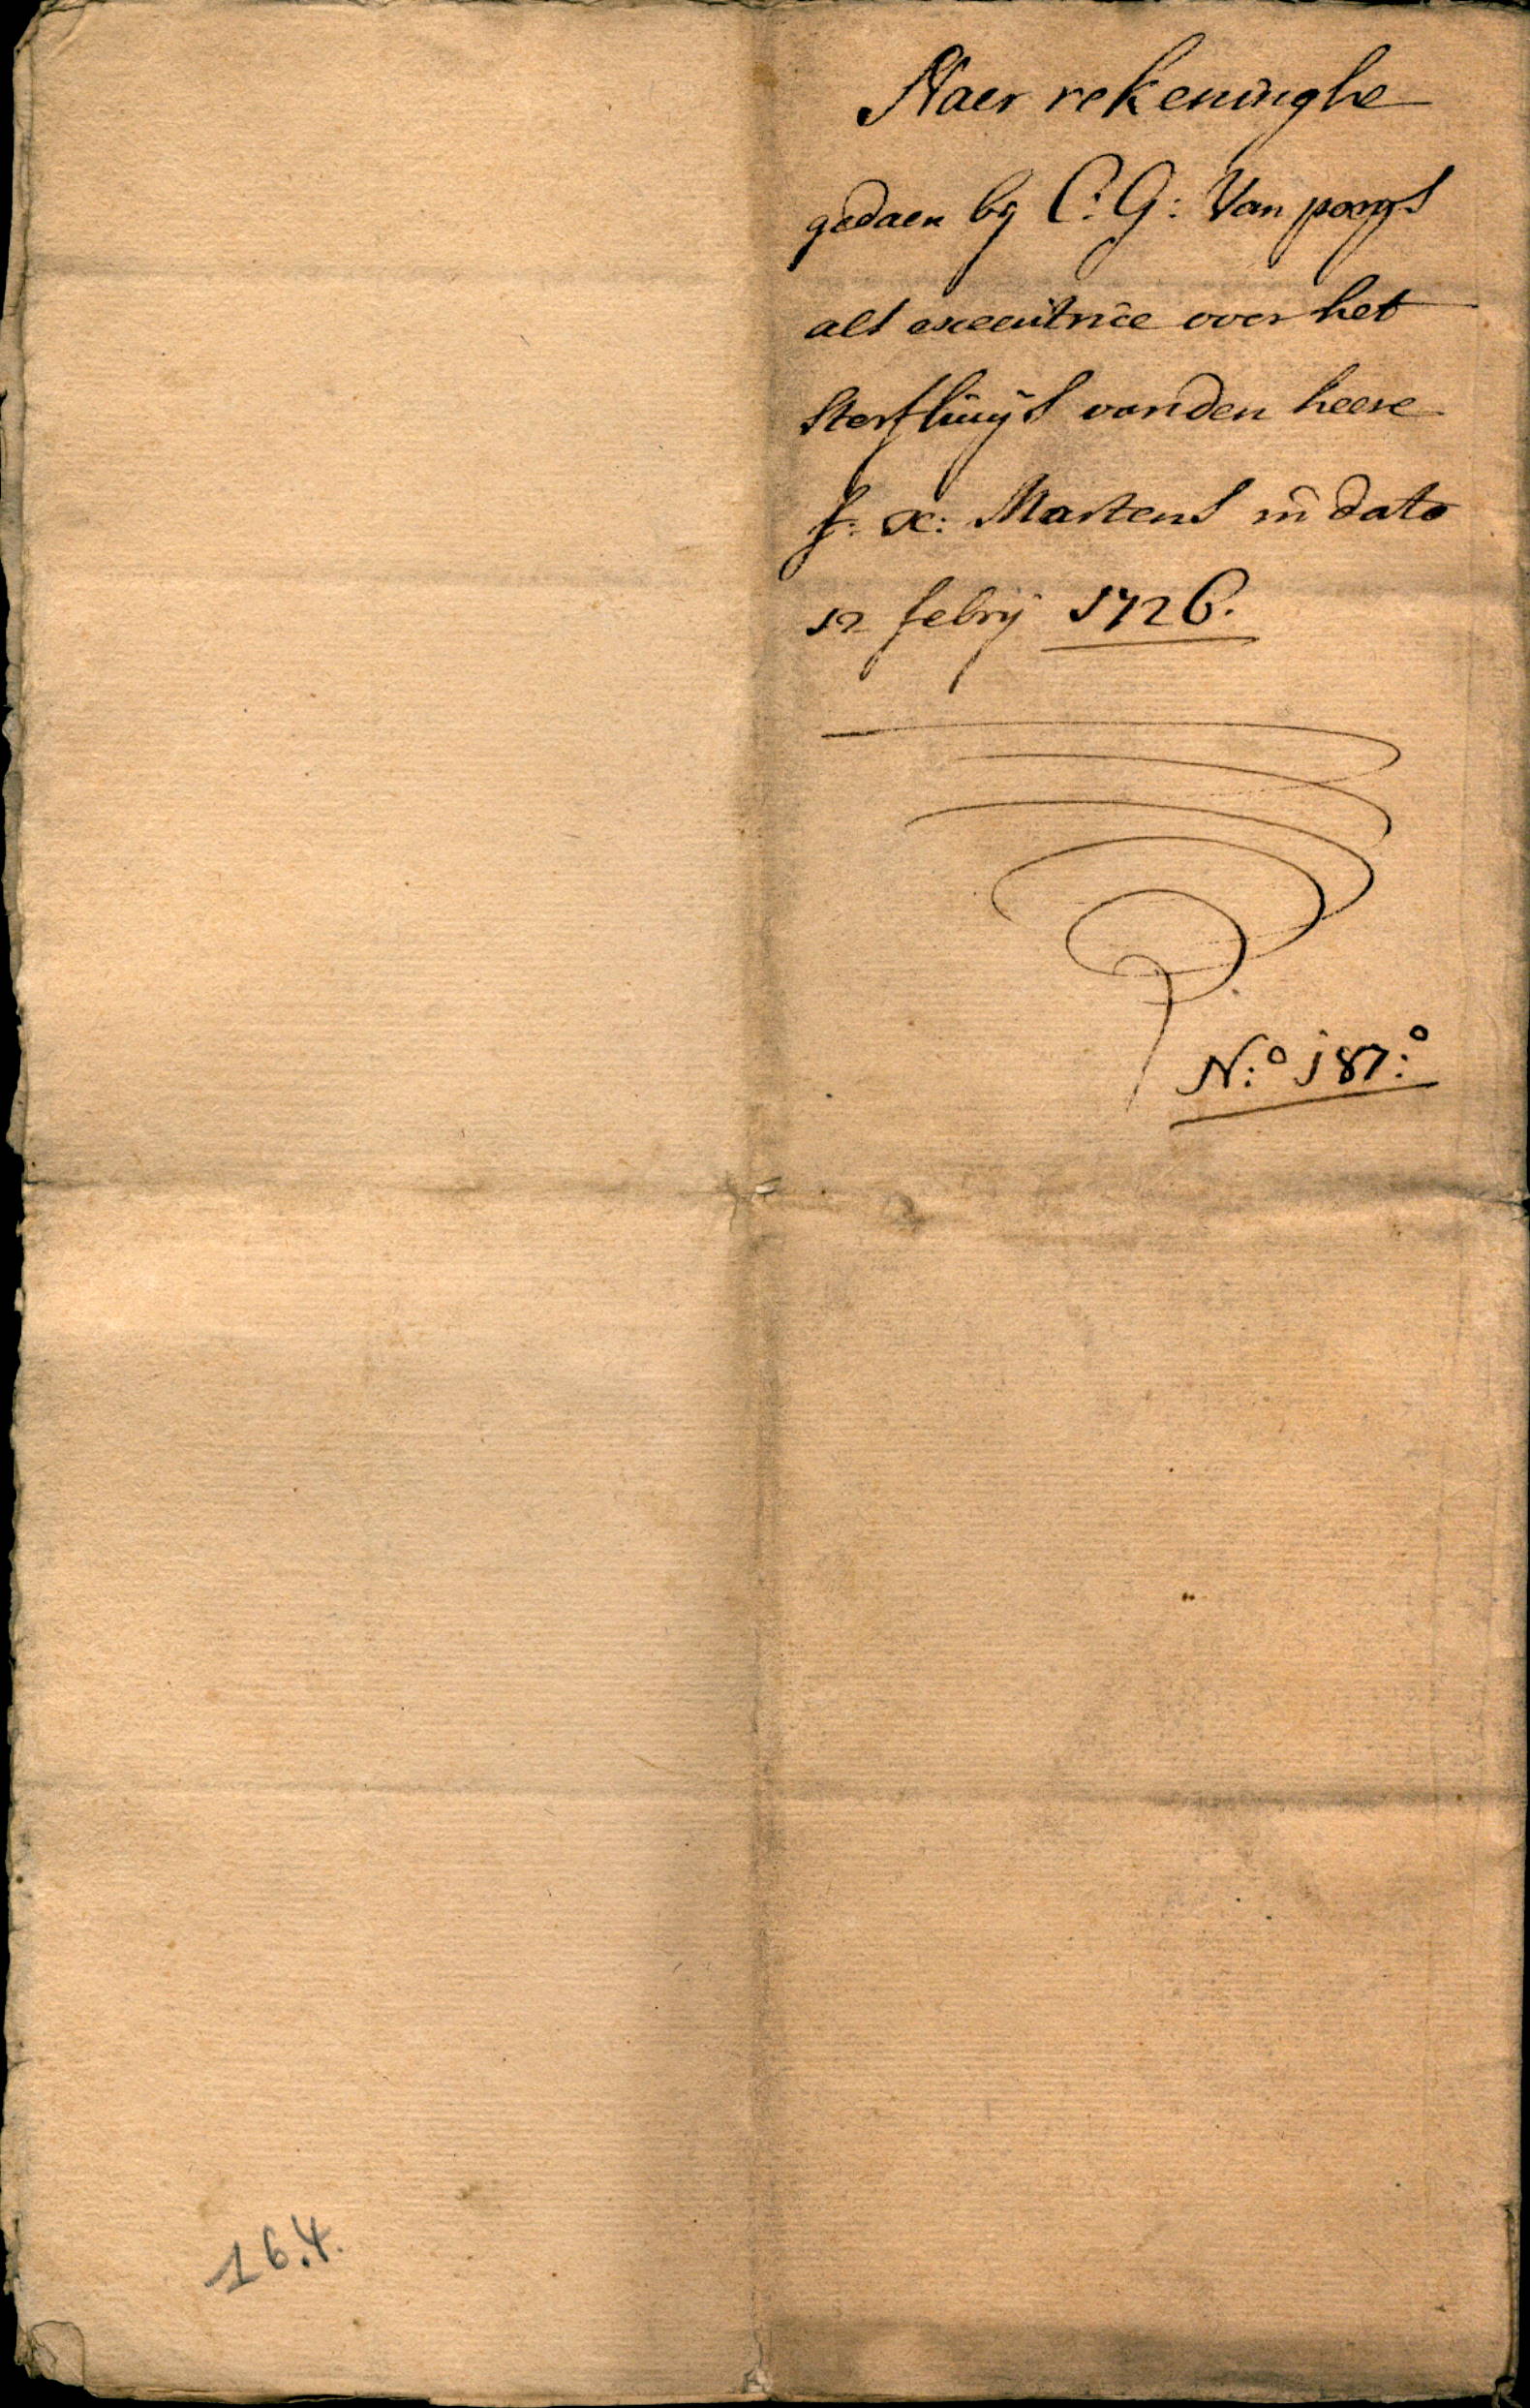 Naer rekeninghe
gedaen by C: G: Van
als executrice over het
sterfhuijs vanden heere
f: x: Martens in dato
12 febrij 1726.
N:o 187:o
164.